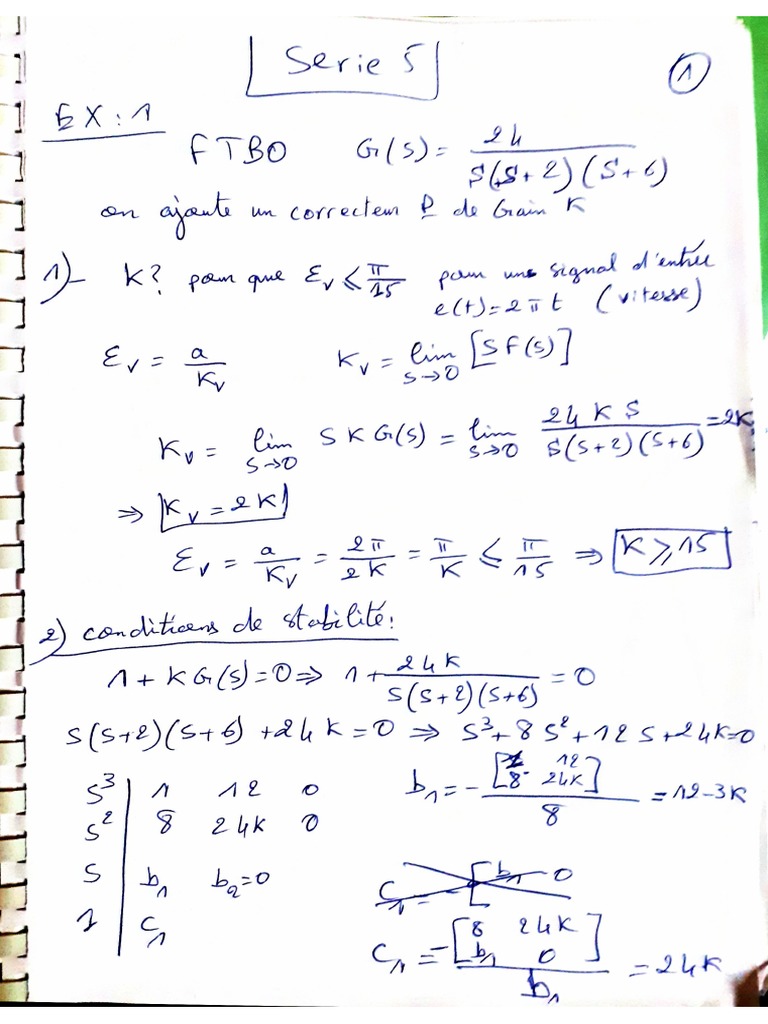 Serie 5
1
EX : 1
FTBO G(s) = 24 / S(S+2)(S+6)
on ajoute un correcteur P de Gain K
1)- K? pour que εv ≤ π/15 pour une signal d'entrée
e(t)=2πt (vitesse)
εv = a/Kv Kv = lim s→0 [S F(s)]
Kv = lim s→0 S K G(s) = lim s→0 24 K S / S(S+2)(S+6) = 2K
⇒ Kv = 2K
εv = a/Kv = 2π/2K = π/K ≤ π/15 ⇒ K ≥ 15
2) conditions de stabilité:
1 + K G(s) = 0 ⇒ 1 + 24K / S(S+2)(S+6) = 0
S(S+2)(S+6) + 24K = 0 ⇒ S³ + 8S² + 12S + 24K = 0
S³ | 1 12 0 b1 = - [1 12 8 24K] / 8 = 12-3K
S² | 8 24K 0
S | b1 b2=0
1 | C1
C1 = - [8 24K b1 0] / b1 = 24K